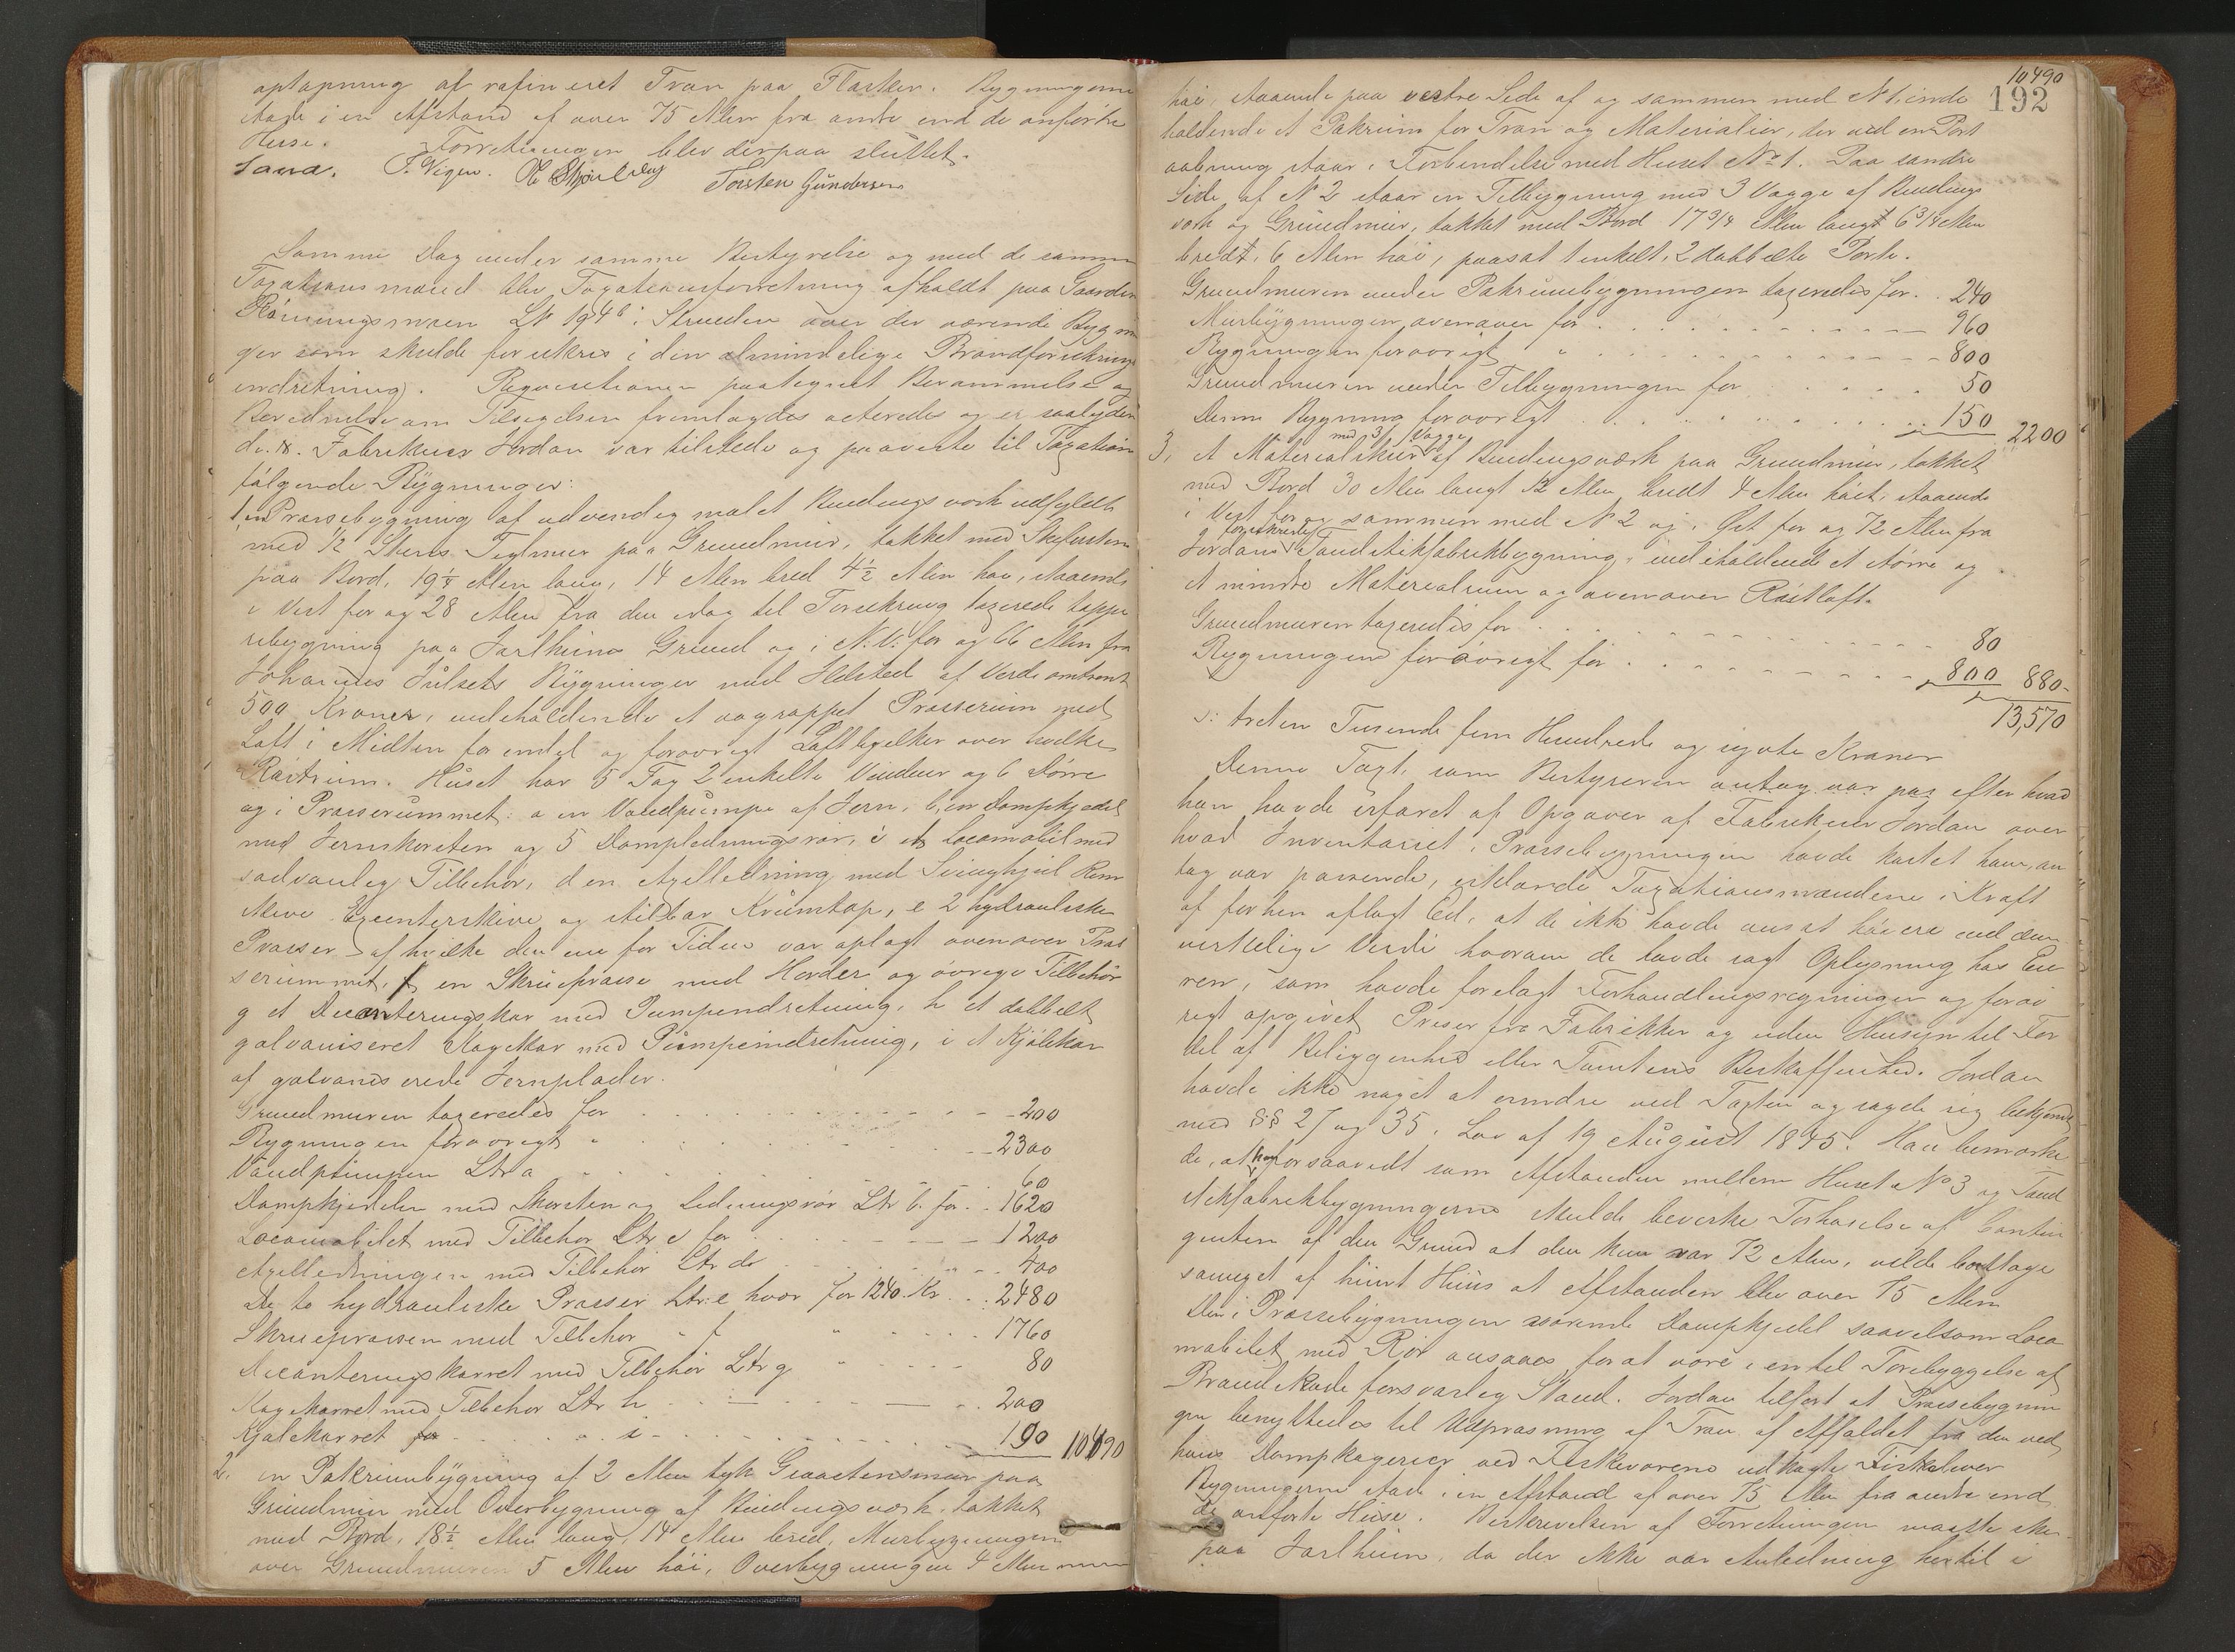 optapning af rafineret Tran paa Flasker. Bygningerne
stode i en Afstand af over 75 Alen fra andre end de anførte
Huse. Forretningen blev derpaa sluttet.
Sand. F. Vigen. Torsten Gundersen
Samme Dag under samme Bestyrelse og med de samme
Taxationsmænd blev Taxationsforretning afholdt paa Gaarden
LN 194b i Strinden over der værende Bygnin
ger som skulde forsikres i den almindelige Brandforsikrings
indretning. Reqvisitionen paategnet Berammelse og
Beviidnelse om Tilsigelsen fremlagdes acteredes og er saalyden
de. N. Fabrikeier Jordan var tilstede og paaviste til Taxation
følgende Bygninger:
1, en Pressebygning af udvendig malet Bindingsværk udfyldt
med 1/2 Stens Teglmur paa Grundmur, tækket med Skifersten
paa Bord, 19 1/4 Alen lang, 14 Alen bred 4 1/2 Alen høi, staaende
i Vest for og 28 Alen fra den idag til Forsikring taxerede tappe
ribygning paa Jarlheims Grund og i N.V. for og 66 Alen fra
Johannes Hulsets Bygninger med Ildsted af Verdi omtrent
500 Kroner, indeholdende et rappet Presserum med
Loft i Midten for endel og forøvrigt Loftbjelker over hvilke
Røstrum. Huset har 5 Fag 2 enkelte Vinduer og 6 Døre
og i Presserummet: a en Vandpumpe af Jern, b, en Dampkjedel
med Jernskorsten og 5 Dampledningsrør, c et Locomobil med
sædvanlig Tilbehør, d en Axelledning med Svinghjul Rem
skive Excenterskive og stilbar Krumtap, e 2 hydrauliske
Presser af hvilke den ene for Tiden var oplagt ovenover Pres
serummet, f, en Skruepresse med Horder og øvrige Tilbehør
g et Decanteringskar med Pumpeindretning, h et dobbelt
galvaniseret Kogekar med Pumpeindretning, i et Kjølekar
af galvaniserede Jernplader.
Grundmuren taxeredes for 200
Bygningen forøvrigt " 2300
Vandpumpen Ltr a 60
Dampkjedelen med Skorsten og Ledningsrør Ltr b. for 1620
Locomobilet med Tilbehør Ltr c for 1200
Axelledningen med Tilbehør Ltr d 400
De to hydrauliske Presser Ltr: e hver for 1240 Kr 2480
Skruepressen med Tilbehør " f " 1760
Decanteringskarret med Tilbehør Ltr g " 80
Kogekarret med Tilbehør Ltr h 200
Kjølekarret i 190 10490
2. en Pakrumbygning af 2 Alen tyk Graastensmur paa
Grundmur med Overbygning af Bindingsværk tækket
med Bord, 18 1/2 Alen lang, 14 Alen bred, Murbygningen
over Grundmuren 5 Alen høi, Overbygningen 4 Alen
10490
192
høi, staaende paa vestre Side af og sammen med N 1, inde
holdende et Pakrum for Tran og Materialier, der ved en Port
aabning staar i Forbindelse med Huset No 1. Paa søndre
Side af N 2 staar en Tilbygning med 3 Vægge af Bindings
værk og Grundmur, tækket med Bord 17 3/4 Alen langt 6 3/4 Alen
bredt, 6 Alen høi, paasat 1 enkelt, 2 dobbelte Porte.
Grundmuren under Pakrumbygningen taxeredes for 240
Murbygningen ovenover for 960
Bygningen forøvrigt " 800
Grundmuren under Tilbygningen for 50
Denne Bygning forøvrigt 150 2200
med 3 Vægge
3, et Materialskur af Bindingsværk paa Grundmur, tækket
med Bord 30 Alen langt 12 Alen bredt 4 Alen høit, staaende
i Vest for og sammen med N 2 og i Øst for og 72 Alen fra
forsikrede
Jordans Tændstikfabrikbygning, indeholdende et større og
et mindre Materialrum og ovenover Røstloft.
Grundmuren taxeredes for 80
Bygningen forøvrigt for 800 880
13,570
o: tretten Tusende fem Hundrede og sytti Kroner
Denne Taxt, som Bestyreren antog var paa efter hvad
han havde erfaret af Opgaver af Fabrikeier Jordan over
hvad Inventariet i Pressebygningen havde kostet ham, an
tog var passende, erklærede Taxationsmændene i Kraft
af forhen aflagt Ed, at de ikke havde ansat høiere end den
virkelige Verdi hvorom de havde søgt Oplysning hos Eie
ren, som havde forelagt Forhandlingsregninger og forøv
rigt opgivet Priser fra Fabrikker og uden Hensyn til For
del af Beliggenhed eller Tomtens Beskaffenhed. Jordan
havde ikke noget at erindre ved Taxten og sagde sig bekjendt
med §§ 27 og 35 i Lov af 19 August 1845. Han bemærke
de, at han forsaavidt som Afstanden mellem Huset No 3 og Tænd
stikfabrikbygningerne skulde bevirke Forhøielse af Contin
genten af den Grund at den kun var 72 Alen, vilde borttage
saameget af hiint Huus at Afstanden blev over 75 Alen
Den i Pressebygningen værende Dampkjedel saavelsom Loco
mobilet med Rør ansaaes for at være i en til Forebyggelse af
Brandskade forsvarlig Stand. Jordan tilførte at Pressebygnin
gen benyttedes til Udpresning af Tran af Affaldet fra den ved
hans Dampkogerier ved Fiskeværene udkogte Fiskelever
Bygningerne stode i en Afstand af over 75 Alen fra andre end
de anførte Huse. Beskrivelsen af Forretningen maatte ske
paa Jarlheim, da der ikke var Anledning hertil i